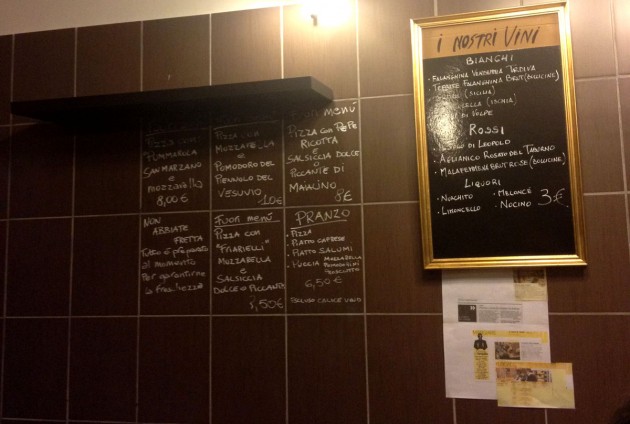 PIZZA CON
PUMMAROLA
SAN MARZANO
e
MOZZARELLA
8,00 €
PIZZA CON
MOZZARELLA
e
POMODORO DEL
PIENNOLO DEL
VESUVIO
10€
FUORI MENÚ
PIZZA CON PEPE
RICOTTA
e
SALSICCIA DOLCE
O
PICCANTE DI
MAIALINO
8€
NON
ABBIATE
FRETTA
TUTTO è preparato
al momento
Per garantirne
la freschezza
FUORI MENÚ
PIZZA CON
"FRIARIELLI"
MOZZARELLA
e
SALSICCIA
DOLCE O PICCANTE
,50€
PRANZO
• PIZZA
• PIATTO CAPRESE
• PIATTO SALUMI
• PUCCIA MOZZARELLA
POMODORINI
PROSCIUTTO
6,50€
ESCLUSO CALICE VINO
I NOSTRI VINI
BIANCHI
• FALANGHINA VENDEMMIA TARDIVA
FALANGHINA BRUT (BOLLICINE)
(SICILIA)
(ISCHIA)
DI VOLPE
ROSSI
DI LEOPOLD
• AGLIANICO ROSATO DEL TABURNO
BRUT ROSE (BOLLICINE)
LIQUORI
• NUCHITO • MELONCE 3€
• LIMONCELLO • NOCINO